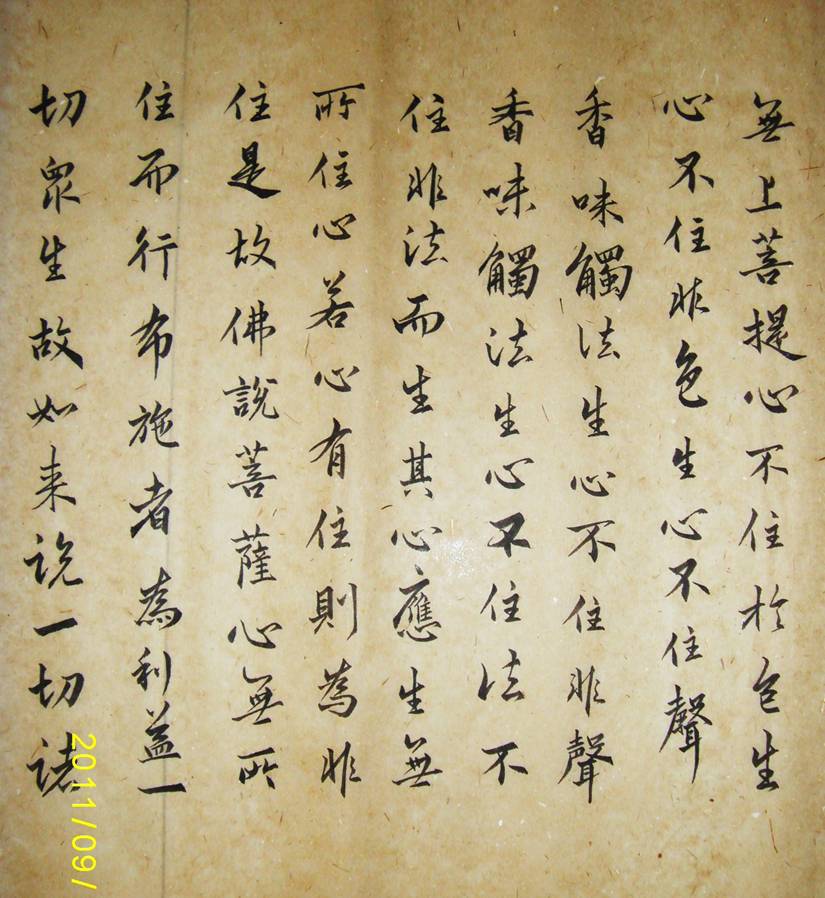 無上菩提心不住於色生
心不住非色生心不住聲
香味觸法生心不住非聲
香味觸法生心不住法不
住非法而生其心應生無
所住心若心有住則為非
住是故佛說菩薩心無所
住而行布施者為利益一
切眾生故如来說一切諸
2011/09/